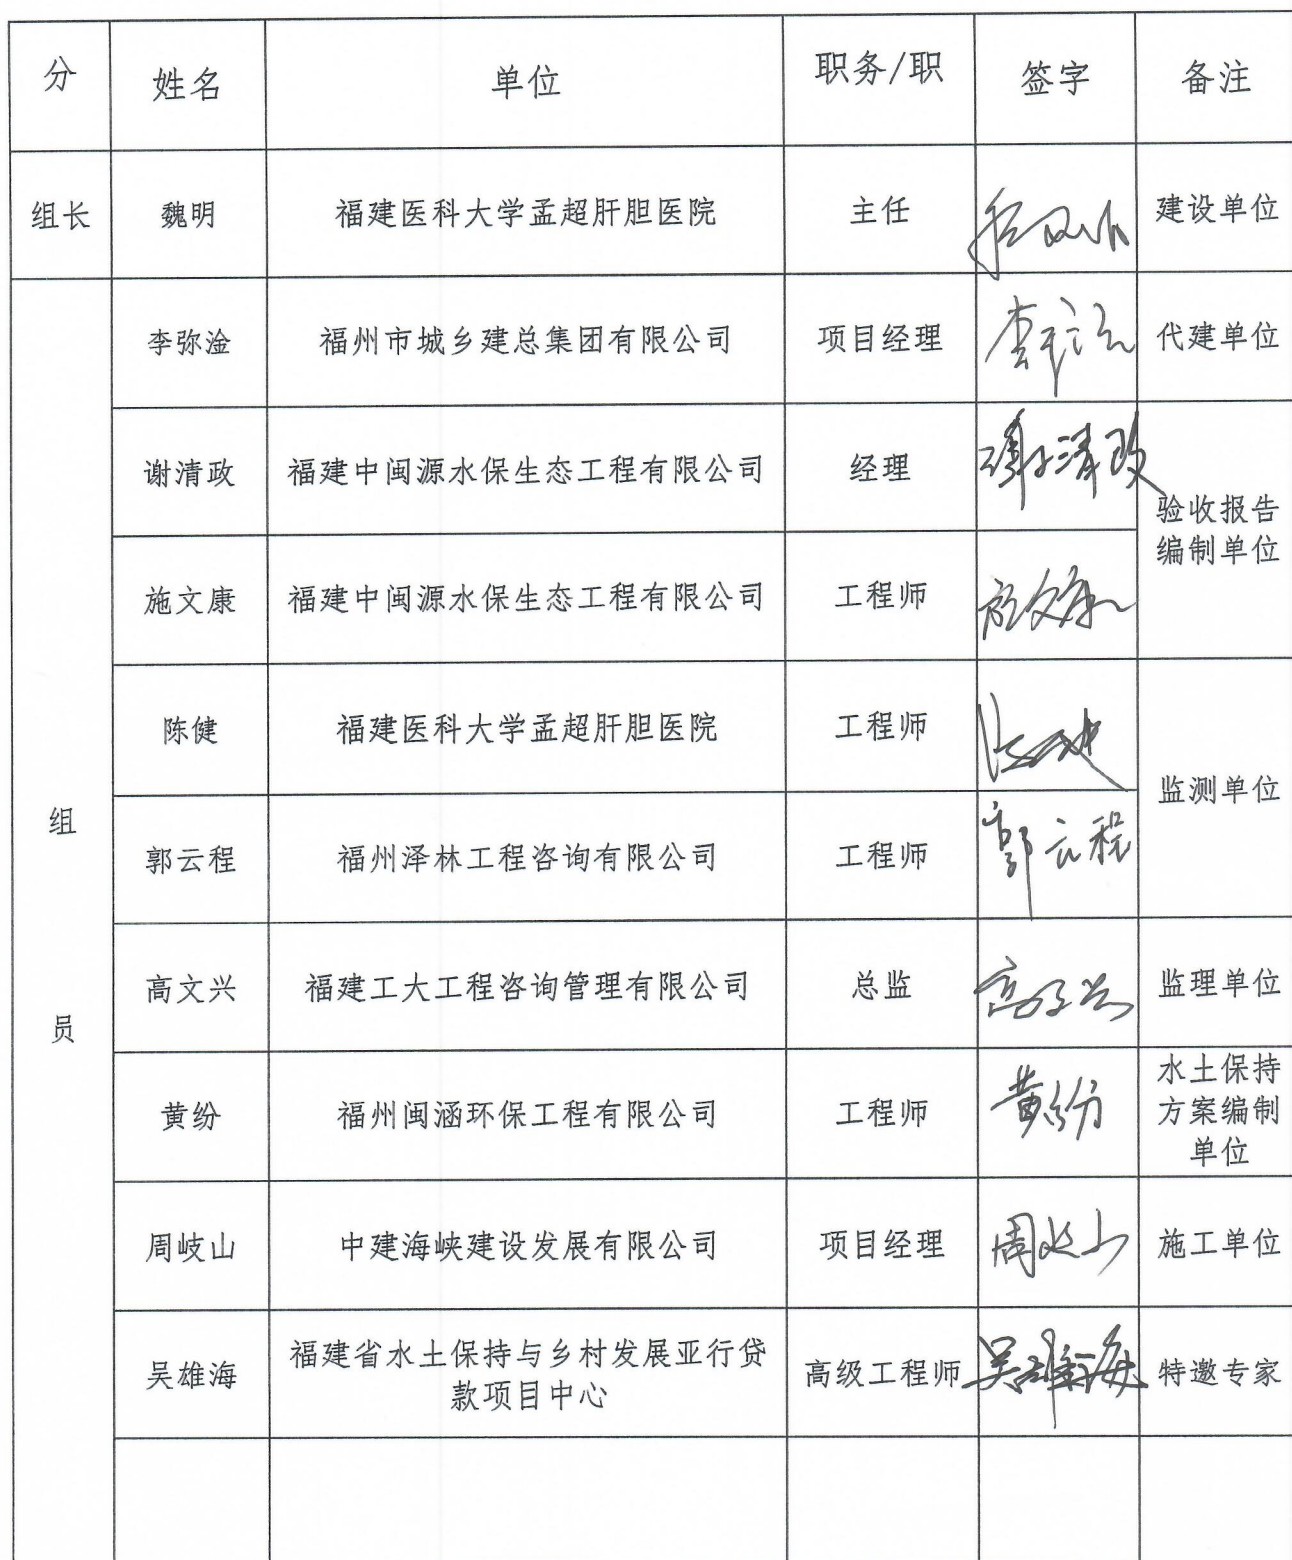 分 姓名 单位 职务/职 签字 备注
组长 魏明 福建医科大学孟超肝胆医院 主任 建设单位
李弥淦 福州市城乡建总集团有限公司 项目经理 代建单位
谢清政 福建中闽源水保生态工程有限公司 经理 谢清政
验收报告
编制单位
施文康 福建中闽源水保生态工程有限公司 工程师 施文康
陈健 福建医科大学孟超肝胆医院 工程师
监测单位
组
郭云程 福州泽林工程咨询有限公司 工程师 郭云程
高文兴 福建工大工程咨询管理有限公司 总监 高文兴 监理单位
员
黄纷 福州闽涵环保工程有限公司 工程师 黄纷
水土保持
方案编制
单位
周岐山 中建海峡建设发展有限公司 项目经理 周岐山 施工单位
吴雄海 福建省水土保持与乡村发展亚行贷
款项目中心
高级工程师 吴雄海 特邀专家